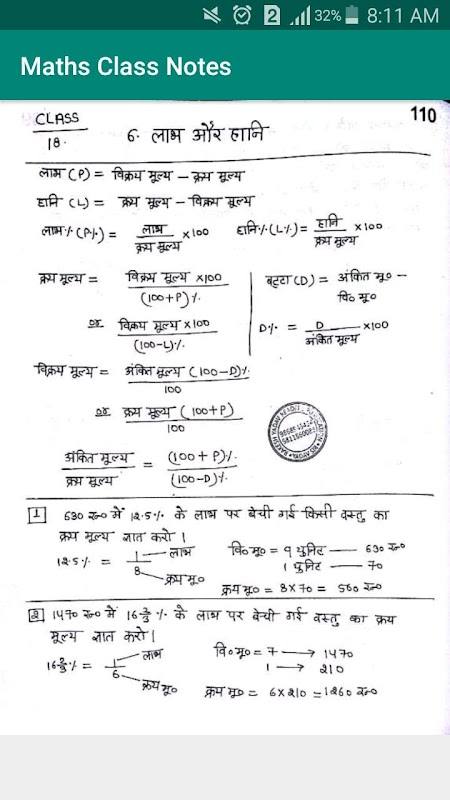 2 32% 8:11 AM
Maths Class Notes
CLASS 18.
6. लाभ और हानि
110
लाभ (P) = विक्रय मूल्य – क्रय मूल्य
हानि (L) = क्रय मूल्य – विक्रय मूल्य
लाभ% (P%) = लाभ / क्रय मूल्य ×100
हानि% (L%) = हानि / क्रय मूल्य ×100
क्रय मूल्य = विक्रय मूल्य ×100 / (100+P)%
बट्टा (D) = अंकित मू० – वि० मू०
or विक्रय मूल्य ×100 / (100-L)%
D% = D / अंकित मूल्य ×100
विक्रय मूल्य = अंकित मूल्य (100-D)% / 100
or क्रय मूल्य (100+P) / 100
अंकित मूल्य / क्रय मूल्य = (100+P)% / (100-D)%
1 630 रू० में 12.5% के लाभ पर बेची गई किसी वस्तु का
क्रय मूल्य ज्ञात करो।
12.5% = 1 / 8 लाभ क्रय मू०
वि० मू० = 9 युनिट — 630 रू०
1 युनिट — 70
क्रय मू० = 8×70 = 560 रू०
2 1470 रू० में 16 2/3 % के लाभ पर बेची गई वस्तु का क्रय
मूल्य ज्ञात करो।
16 2/3 % = 1 / 6 लाभ क्रय मू०
वि० मू० = 7 → 1470
1 → 210
क्रय मू० = 6×210 = 1260 रू०